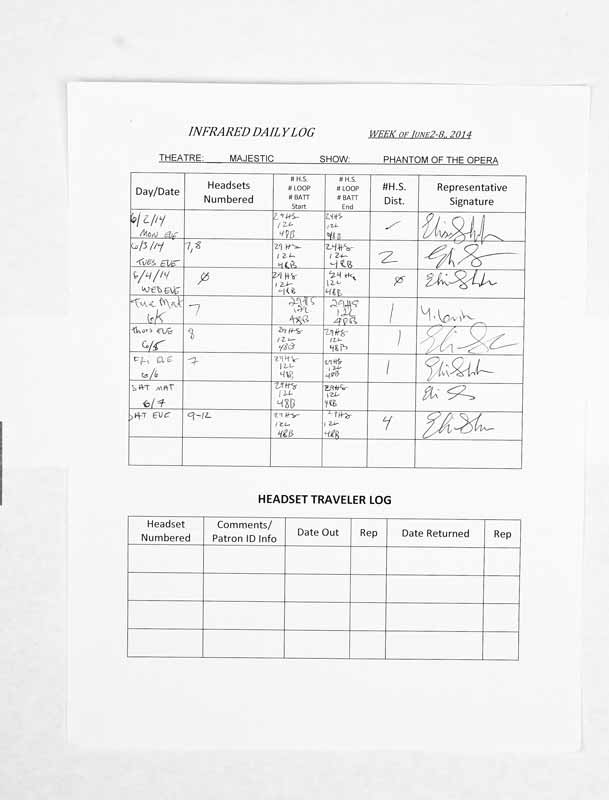 INFRARED DAILY LOG WEEK OF JUNE2-8,, 2014
THEATRE: MAJESTIC SHOW: PHANTOM OF THE OPERA
Day/Date
Headsets
Numbered
# H.S.
# LOOP
# BATT
Start
# H.S.
# LOOP
# BATT
End
#H.S.
Dist.
Representative
Signature
6/2/14
MON EVE
29HS
12L
48B
29HS
12L
48B
6/3/14
TUES EVE
7,8
29HS
12L
48B
29HS
12L
48B
2
6/4/14
WED EVE
ø
29HS
12L
48B
29HS
12L
48B
ø
Tue Mat
6/5
7
29HS
12L
48B
29HS
12L
48B
1
Thurs EVE
6/5
8
29HS
12L
48B
29HS
12L
48B
1
Fri EVE
6/6
7
29HS
12L
48B
29HS
12L
48B
1
SAT MAT
6/7
29HS
12L
48B
29HS
12L
48B
SAT EVE
9-12
29HS
12L
48B
29HS
12L
48B
4
HEADSET TRAVELER LOG
Headset
Numbered
Comments/
Patron ID Info
Date Out
Rep
Date Returned
Rep